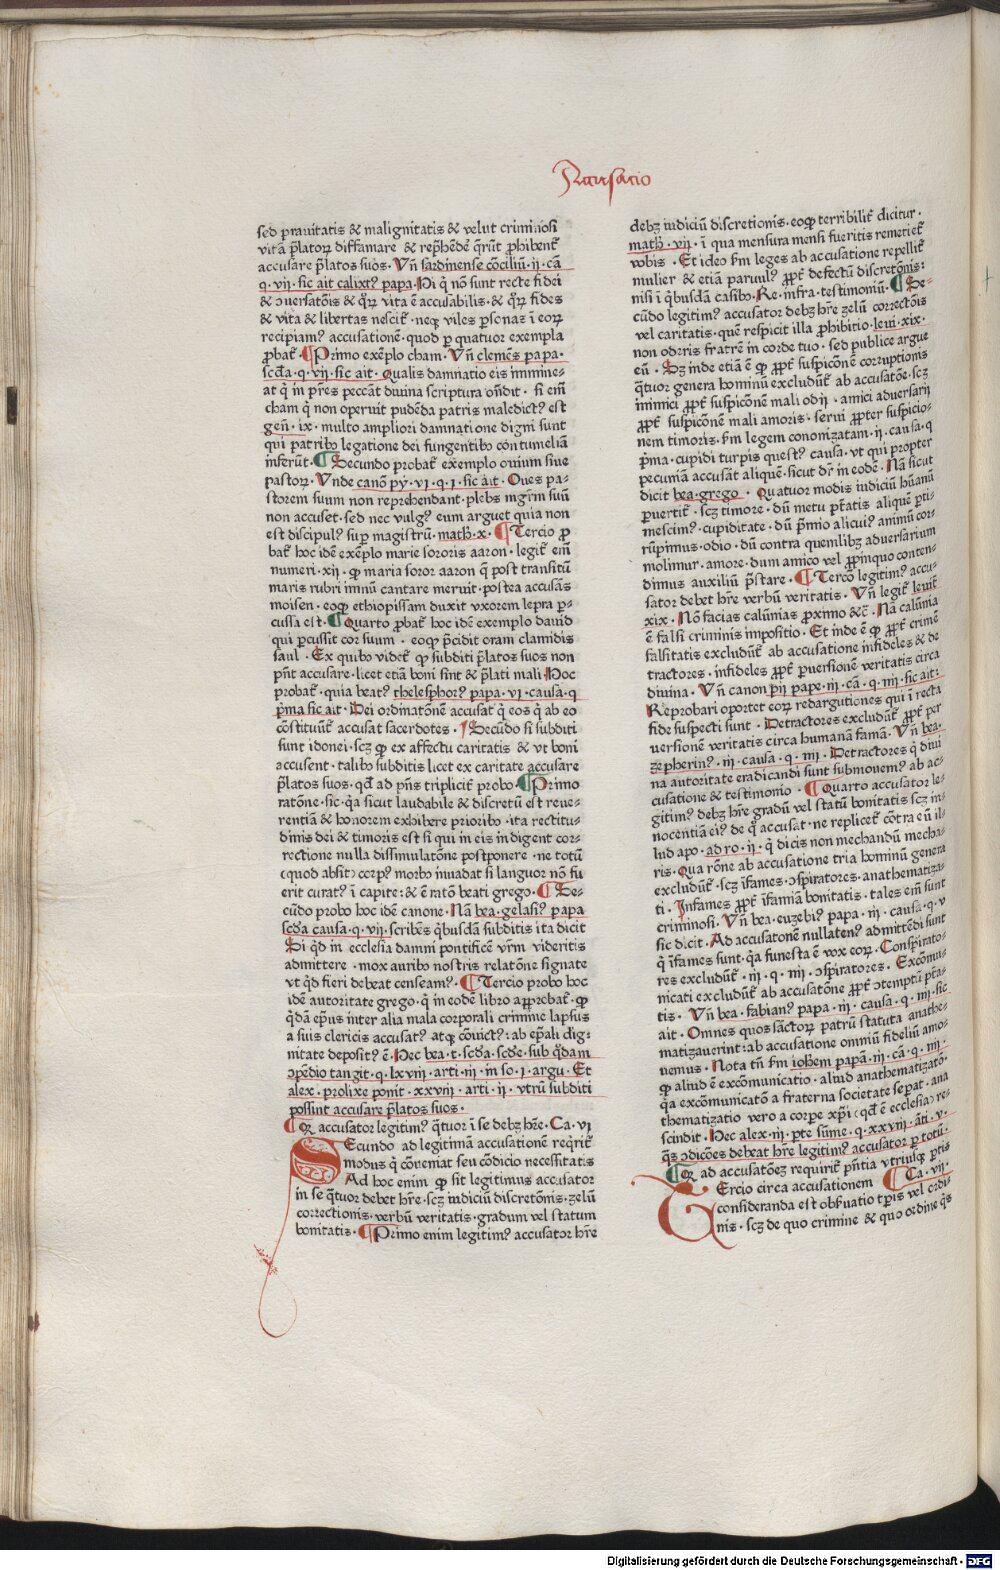 Accusacio
sed prauitatis & malignitatis & velut criminosi
vitā p̄latoꝝ diffamare & rep̄hēdē q̄rūt ꝓhibent᷑
accusare p̄latos suos · Vn̄ sardinense cōciliū · ii · cā
q · vii · sic ait calixtꝰ papa · Hi q̄ nō sunt recte fidei
& ↄuersatōis & q̄ꝝ vita ē accusabilis · & q̄ꝝ fides
& vita & libertas nescit᷑ · neqꝫ viles ꝑsonas ī eoꝝ
recipiamꝰ accusationē · quod ꝑ quatuor exempla
ꝓbat᷑ · ¶ Primo exēplo cham · Vn̄ clemēs papa ·
scd̄a · q · vii · sic ait · Qualis damnatio eis immine-
at q̄ in p̄res peccāt diuina scriptura on̄dit · si em̄
cham q̄ non operuit pudēda patris maledictꝰ est
gen̄ · ix · multo ampliori damnatione digni sunt
qui patribꝰ legatione dei fungentibꝰ contumeliā
inferūt · ¶ Secundo probat᷑ exemplo ouium siue
pastoꝝ · Vnde canō py · vi · q · i · sic ait · Oues pa-
storem suum non reprehendant · plebs mgr̄m suū
non accuset · sed nec vulgꝰ eum arguet quia non
est discipulꝰ suꝑ magistrū · math̄ · x · ¶ Tercio ꝓ
bat᷑ hoc idē exēplo marie sororis aaron · legit᷑ em̄
numeri · xii · ꝙ maria soror aaron q̄ post transitū
maris rubri imnū cantare meruit · postea accusās
moisen · eoqꝫ ethiopissam duxit vxorem lepra ꝑ-
cussa est · ¶ Quarto ꝓbat᷑ hoc idē exemplo dauid
qui ꝑcussit cor suum · eoqꝫ p̄cidit oram clamidis
saul · Ex quibꝰ videt᷑ ꝙ subditi p̄latos suos non
pn̄t accusare · licet etiā boni sint & p̄lati mali · Hoc
probat᷑ · quia beatꝰ thelesphorꝰ papa · vi · causa · q
p̄ma sic ait · Dei ordinatōnē accusat q̄ eos q̄ ab eo
cōstituūt᷑ accusat sacerdotes · ¶ Secūdo si subditi
sunt idonei · scꝫ ꝙ ex affectu caritatis & vt boni
accusent · talibꝰ subditis licet ex caritate accusare
p̄latos suos · qd̄ ad pn̄s tripliciť probo · ¶ Primo
ratōne · sic · q̄a sicut laudabile & discretū est reue-
rentiā & honorem exhibere prioribꝰ · ita rectitu-
dinis dei & timoris est si qui in eis indigent cor-
rectione nulla dissimulatōne postponere · ne totū
(quod absit) corpꝰ morbo inuadat si languor nō fu
erit curatꝰ ī capite : & ē ratō beati grego · ¶ Se-
cūdo probo hoc idē canone · Nā bea · gelasiꝰ papa
scd̄a causa · q · vii · scribēs q̄busdā subditis ita dicit
Si q̄d in ecclesia damni pontificē vr̄m videritis
admittere · mox auribꝰ nostris relatōne signate
vt q̄d fieri debeat censeamꝰ · ¶ Tercio probo hoc
idē autoritate grego · q̄ in eodē libro approbat᷑ · ꝙ
q̄dā ep̄us inter alia mala corporali crimine lapsus
a suis clericis accusatꝰ atqꝫ cōuictꝰ : ab ep̄ali dig-
nitate depositꝰ ē · Hec bea · t · scd̄a · scd̄e · sub q̄dam
ↄpēdio tangit · q · lxviii · arti · iii · in so · i · argu · Et
alex · prolixe ponit · xxviii · arti · ii · vtrū subditi
possint accusare p̄latos suos ·
¶ Qꝝ accusator legitimꝰ q̄tuor ī se debꝫ hr̄e · Ca · vi
Secundo ad legitimā accusationē req̄rit᷑
modus q̄ cōueniat seu cōdicio necessitatis
Ad hoc enim ꝙ sit legitimus accusator
in se q̄tuor debet hr̄e · scꝫ iudiciū discretōnis · zelū
correctionis · verbū veritatis · gradum vel statum
bonitatis · ¶ Primo enim legitimꝰ accusator hr̄e
debꝫ iudiciū discretionis · eoqꝫ terribiliť dicitur ·
math̄ · vii · ī qua mensura mensi fueritis remetiet᷑
vobis · Et ideo ẜm leges ab accusatione repellit᷑
mulier & etiā paruulꝰ ꝓpť defectū discretōnis :
nisi ī q̄busdā casibꝰ · Re · infra · testimoniū · ¶ Se-
cūdo legitimꝰ accusator debꝫ hr̄e zelū correctōis
vel caritatis · quē respicit illa ꝓhibitio · leui · xix ·
non oderis fratrē in corde tuo · sed publice argue
eū · Sꝫ inde etiā ē ꝙ ꝓpť suspicōnē corruptionis
q̄tuor genera hominū excludūt᷑ ab accusatōe · scꝫ
inimici ꝓpť suspicōnē mali odii · amici aduersarii
ꝓpť suspicōnē mali amoris · serui ꝓpter suspicio-
nem timoris · ẜm legem cononizatam · ii · causa · q
p̄ma · cupidi turpis questꝰ causa · vt qui propter
pecuniā accusāt aliquē · sicut dr̄ in eodē · Nā sicut
dicit bea · grego · Quatuor modis iudiciū hūanū
ꝑuertit᷑ · scꝫ timore · dū metu p̄tatis aliquē ꝑti-
mescimꝰ · cupiditate · dū p̄mio alicuiꝰ animū cor-
rūpimus · odio · dū contra quemlibꝫ aduersarium
molimur · amore · dum amico vel ꝓpinquo conten-
dimus auxiliū p̄stare · ¶ Tercō legitimꝰ accu-
sator debet hr̄e verbū veritatis · Vn̄ legit᷑ leuit᷑
xix · Nō facias calūnias ꝓximo &c̄ · Nā calūnia
ē falsi criminis impositio · Et inde ē ꝙ ꝓpť crimē
falsitatis excludūt᷑ ab accusatione infideles & de
tractores · infideles ꝓpť ꝑuersionē veritatis circa
diuina · Vn̄ canon pii pape · iii · cā · q · iiii · sic ait :
Reprobari oportet eoꝝ redargutiones qui ī recta
fide suspecti sunt · Detractores excludūt᷑ ꝓpť per
uersionē veritatis circa humanā famā · Vn̄ bea ·
zepherinꝰ · iii · causa · q · iiii · Detractores q̄ diui
na autoritate eradicandi sunt submouemꝰ ab ac-
cusatione & testimonio · ¶ Quarto accusator le-
gitimꝰ debꝫ hr̄e gradū vel statū bonitatis scꝫ in-
nocentiā eiꝰ de q̄ accusat · ne replicet᷑ cōtra eū il-
lud apo · ad ro · ii · q̄ dicis non mechandū mecha-
ris · Qua rōne ab accusatione tria hominū genera
excludūt᷑ · scꝫ īfames · ↄspiratores · anathematiza-
ti · Infames ꝓpť īfamiā bonitatis · tales em̄ sunt
criminosi · Vn̄ bea · euzebiꝰ papa · iii · causa · q · v
sic dicit · Ad accusatonē nullatenꝰ admittēdi sunt
q̄ īfames sunt · q̄a funesta ē vox eoꝝ · Conspirato-
res excludūt᷑ · iii · q · iiii · ↄspiratores · Excōmu-
nicati excludūt᷑ ab accusatōne ꝓpť ↄtemptū p̄ta-
tis · Vn̄ bea · fabianꝰ papa · iii · causa · q · iiii · sic
ait · Omnes quos sāctoꝝ patrū statuta anathe-
matizauerint : ab accusatione omniū fideliū amo-
uemus · Nota tn̄ ẜm iohem papā · iii · cā · q · iiii ·
ꝙ aliud ē excōmunicatio · aliud anathematizatō ·
q̄a excōmunicatō a fraterna societate seꝑat · ana
thematizatio vero a corpe xp̄i (qd̄ ē ecclesia) re-
scindit · Hec alex · iii · pte sūme · q · xxviii · āti · v ·
q̄s ↄdicōes debeat hr̄e legitimꝰ accusator ꝑ totū ·
¶ Qꝝ ad accusatōeꝫ requirit᷑ pn̄tia vtriusqꝫ ꝑtis
Tercio circa accusationem ¶ Ca · vii ·
consideranda est obseruatio tp̄is vel ordi-
nis · scꝫ de quo crimine & quo ordine q̄s
Digitalisierung gefördert durch die Deutsche Forschungsgemeinschaft - DFG